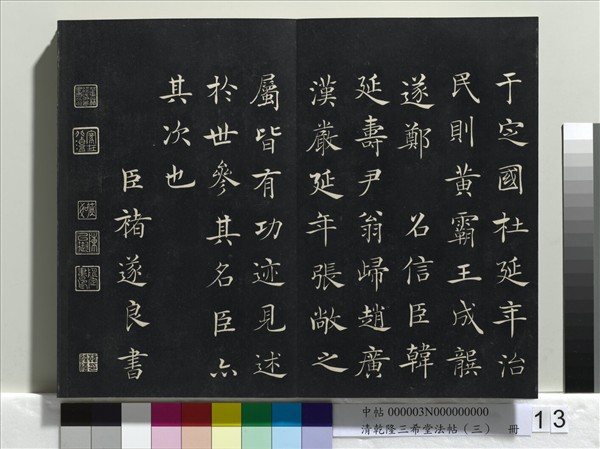 于定國杜延年治
民則黃霸王成龔
遂鄭 名信臣韓
延壽尹翁歸趙廣
漢嚴延年張敞之
屬皆有功迹見述
於世參其名臣亦
其次也
臣褚遂良書
中帖 000003N000000000
清乾隆三希堂法帖（三） 冊
13